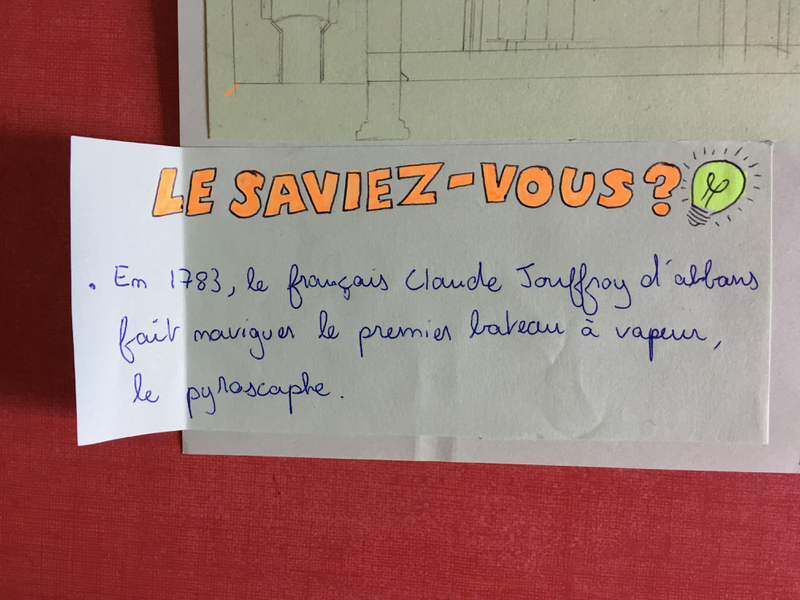 LE SAVIEZ-VOUS?
. En 1783, le français Claude Jouffroy d'abbans
fait naviguer le premier bateau à vapeur,
le pyroscaphe.